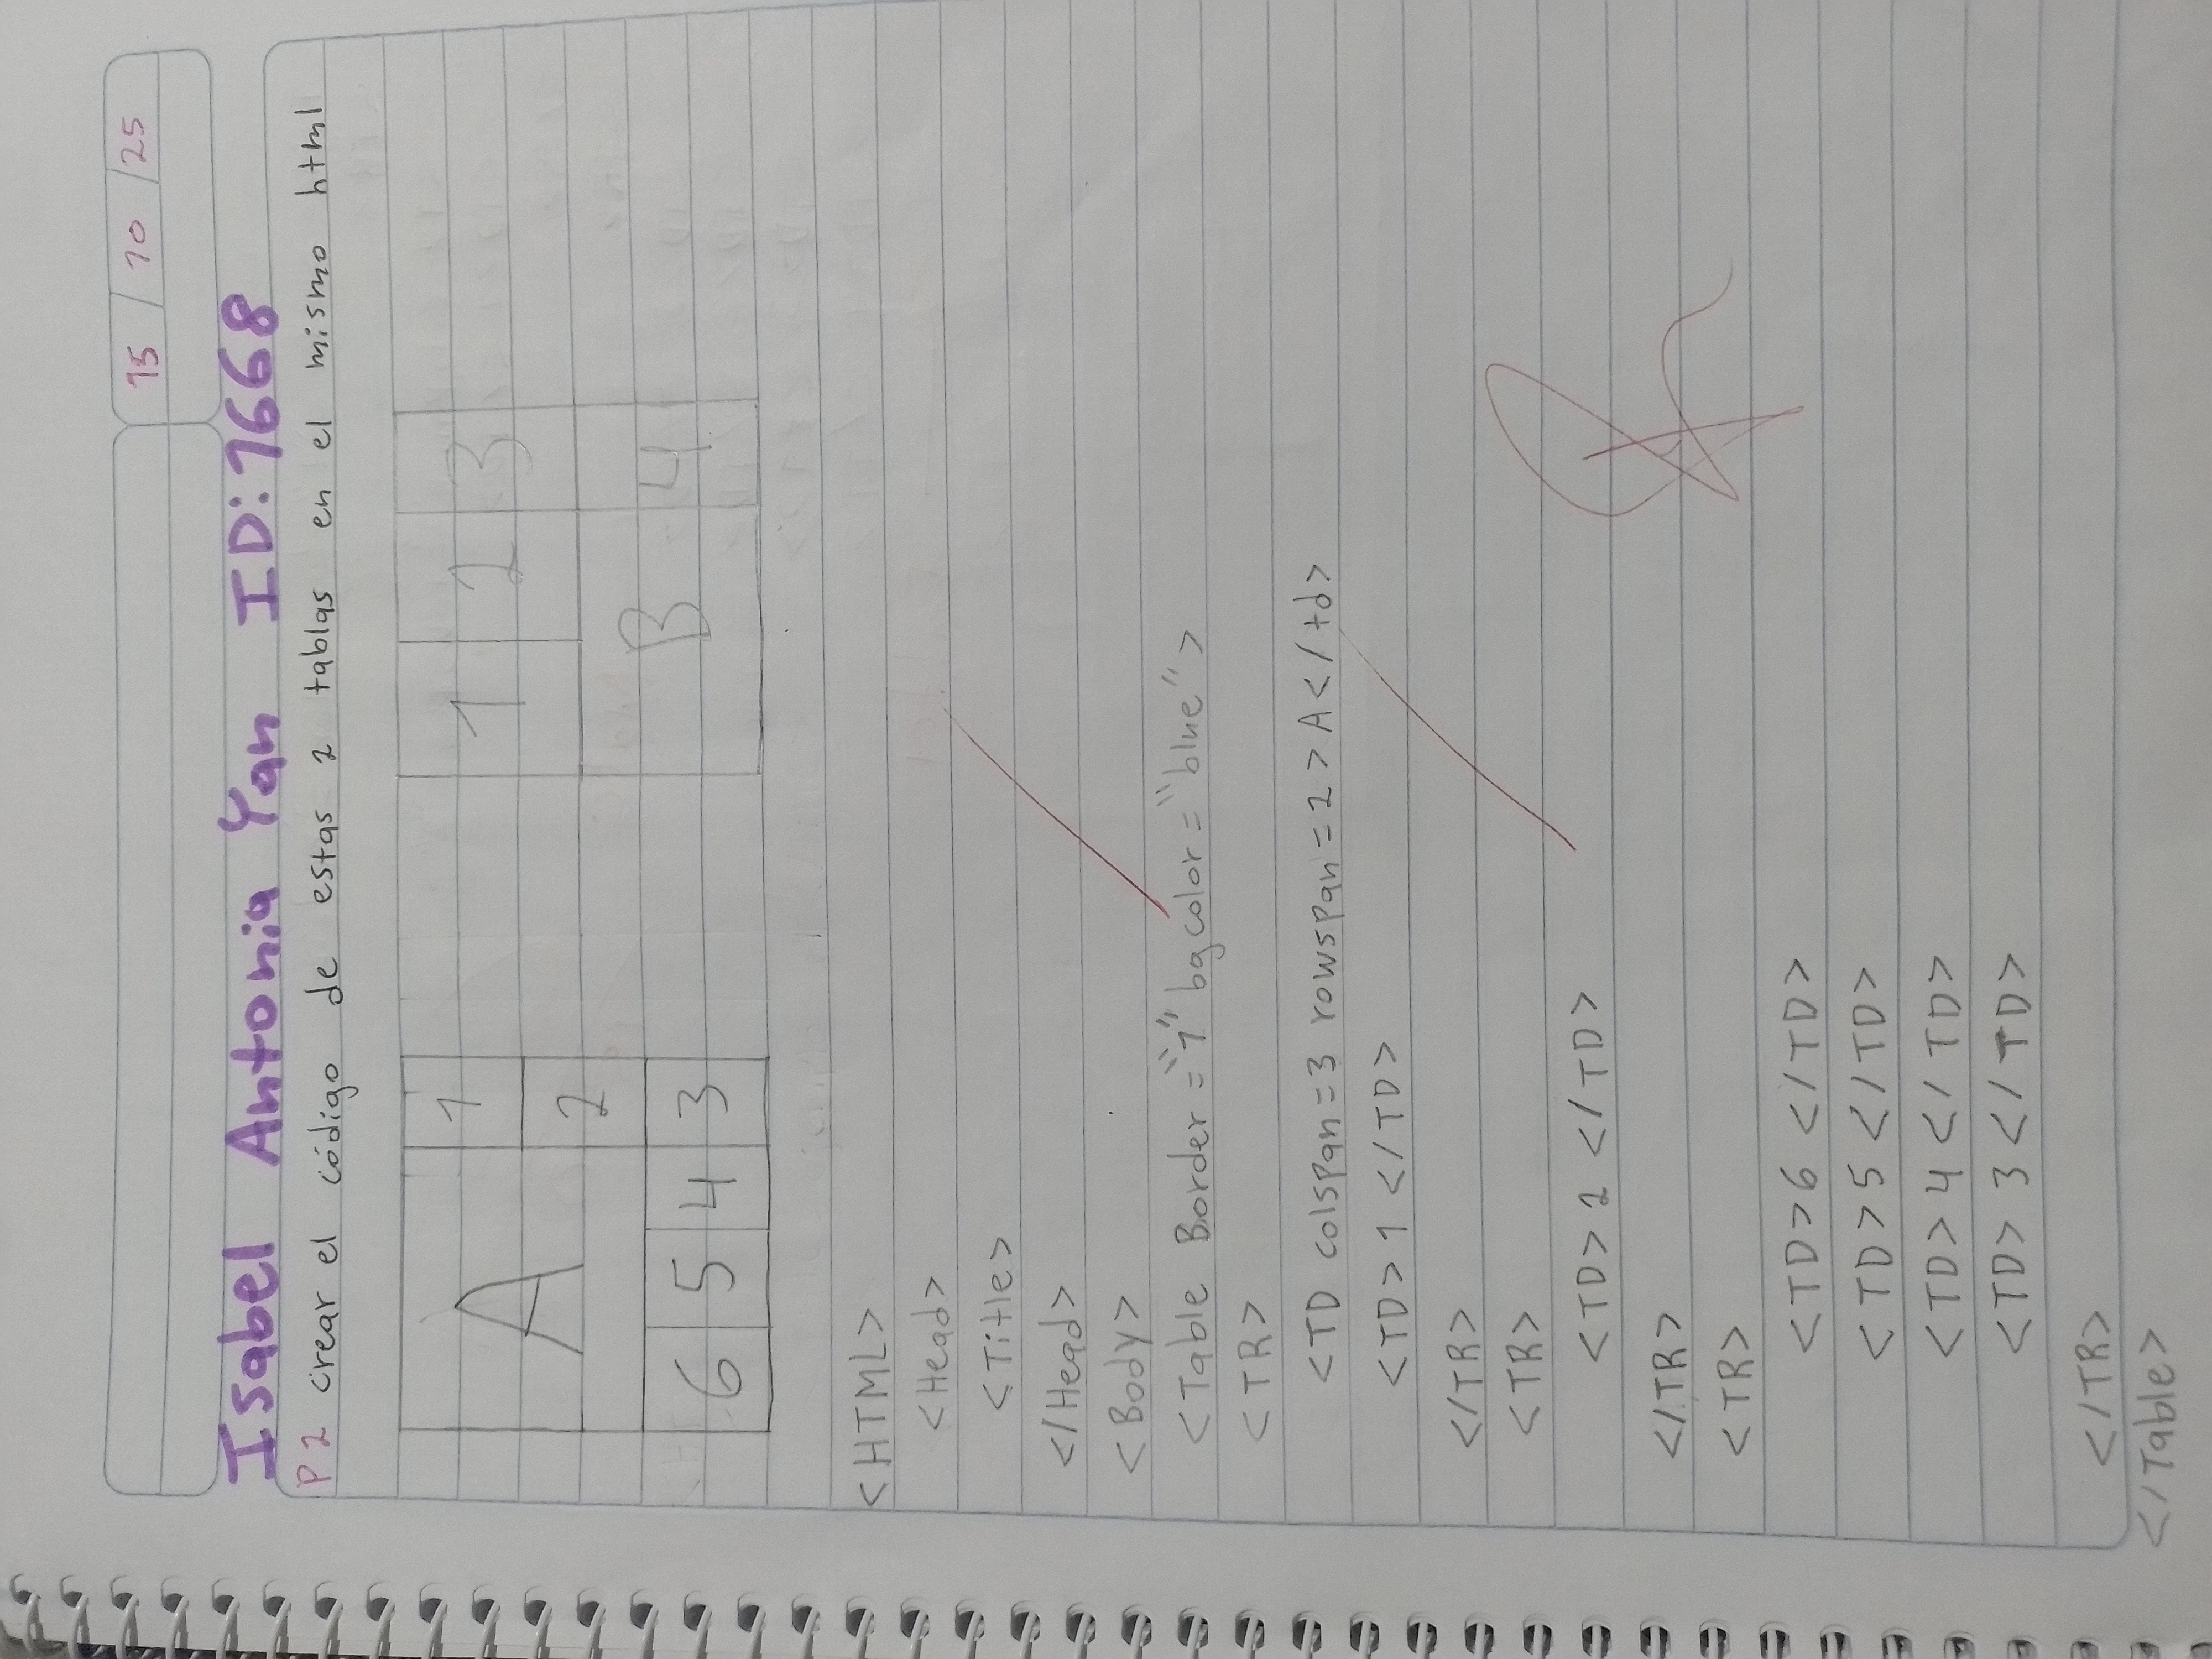 15 / 10 / 25
Isabel Antonia Yan ID: 1668
P2 crear el código de estas 2 tablas en el mismo html
A 1 1 2 3
2
6 5 4 3 B 4
<HTML>
<Head>
<Title>
</Head>
<Body>
<Table Border="1" bgcolor="blue">
<TR>
<TD colspan=3 rowspan=2>A</td>
<TD>1</TD>
</TR>
<TR>
<TD>2</TD>
</TR>
<TR>
<TD>6</TD>
<TD>5</TD>
<TD>4</TD>
<TD>3</TD>
</TR>
</Table>